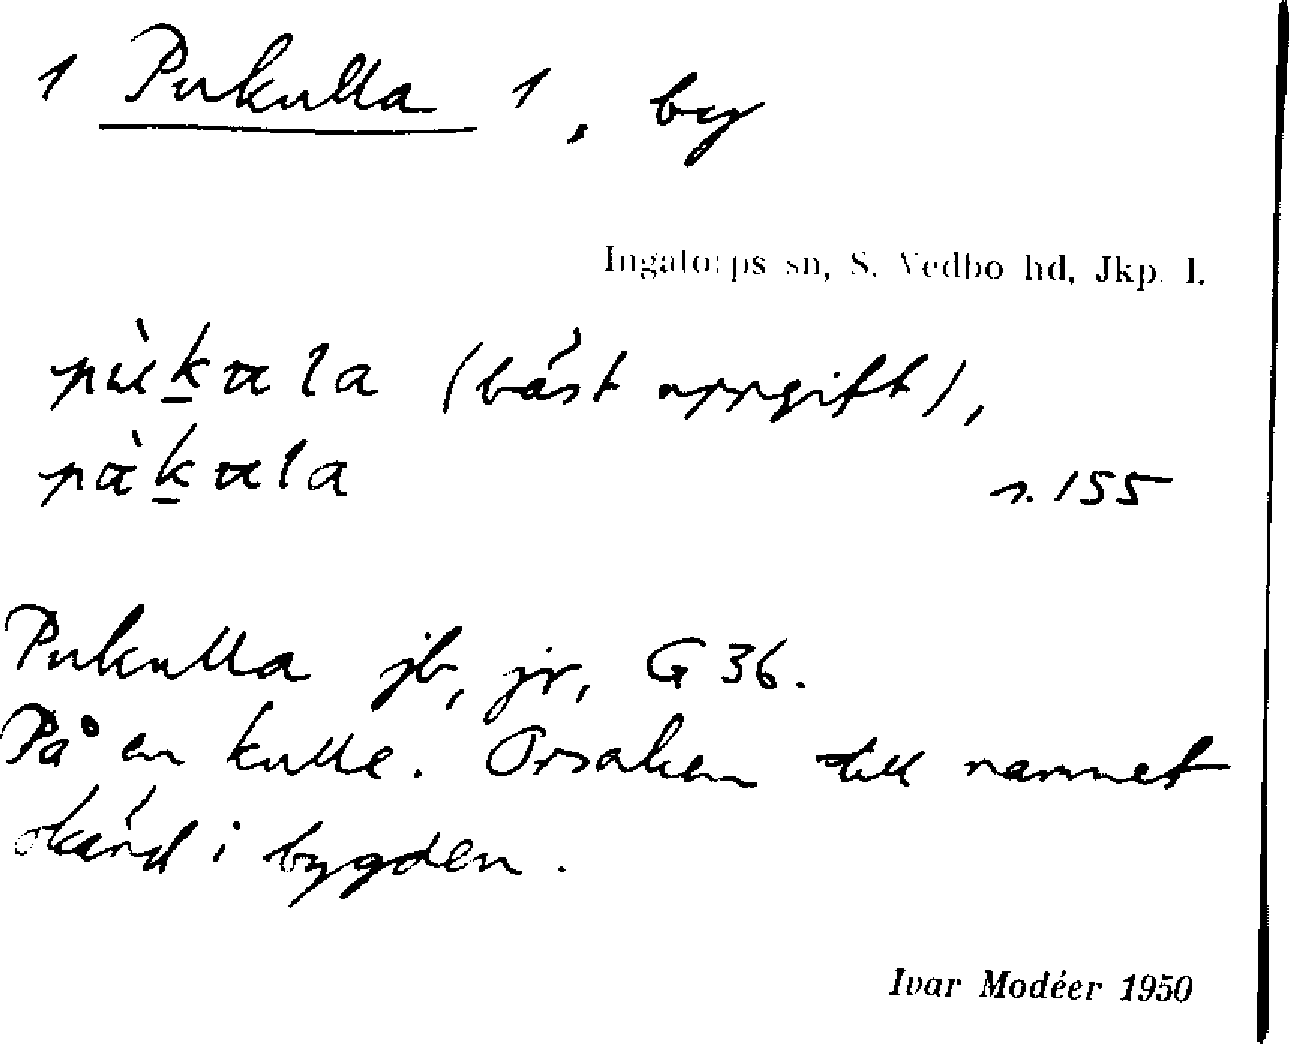 1 Pukulla 1, by
Ingatorps sn, S. Vedbo hd, Jkp. l.
(bäst uppgift),
s. 155
Pukulla jb, jr, G 36.
På en kulle. Orsaken till namnet
okänd i bygden.
Ivar Modéer 1950